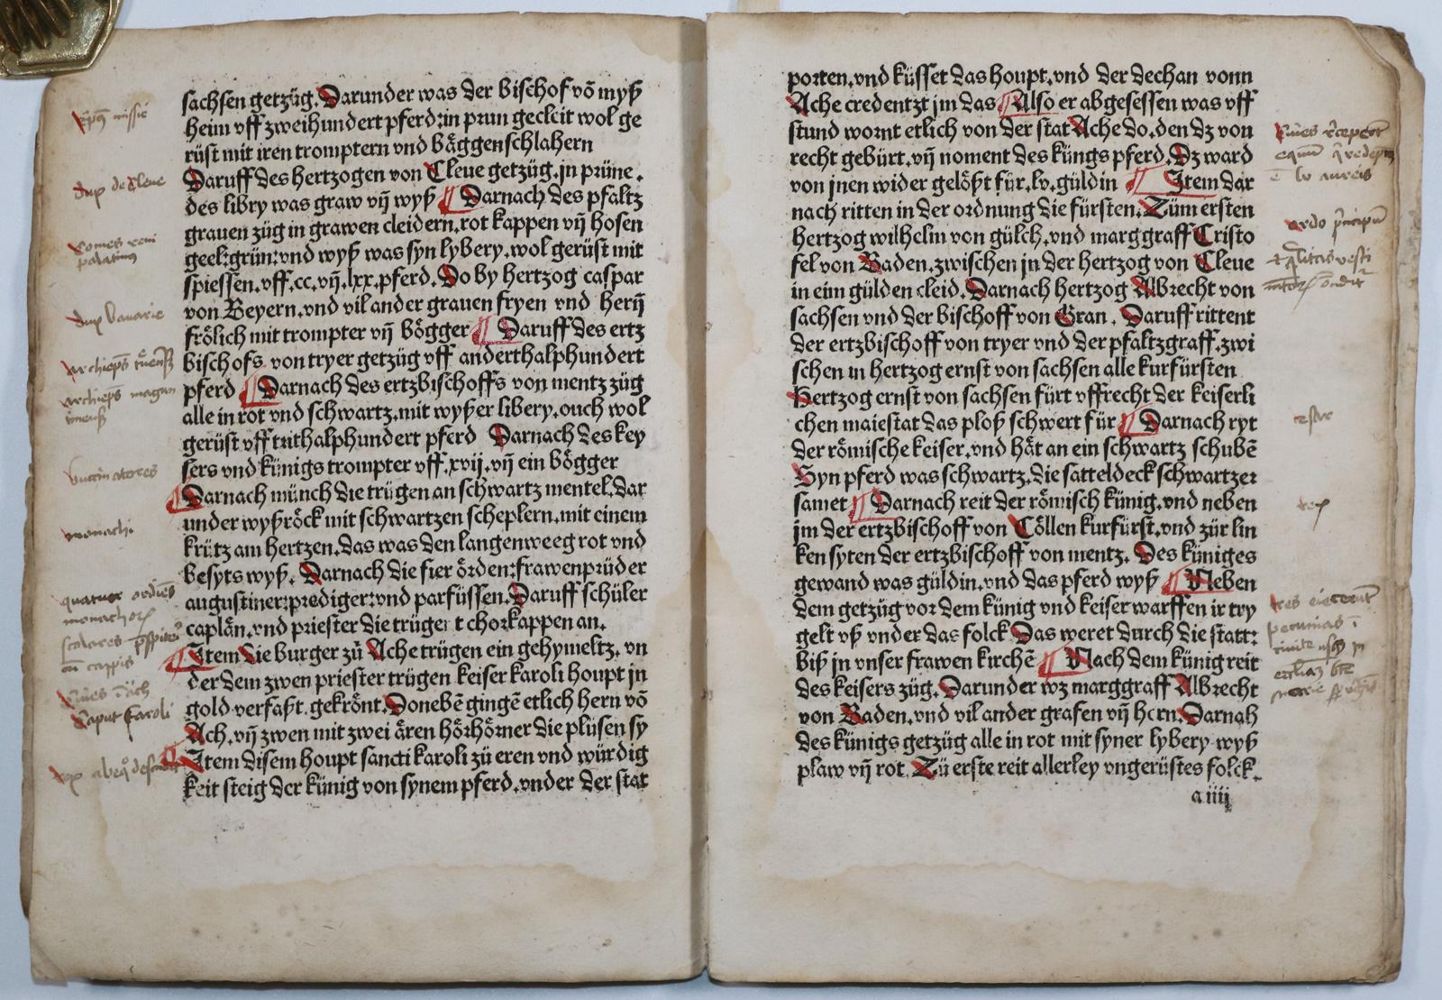 sachsen getzüg. Darunder was der bischof võ myß
heim vff zweihundert pferd: in prun gecleit wol ge
rüst mit iren tromptern vnd bäggenschlahern
Daruff des hertzogen von Cleue getzüg. in prüne.
des libry was graw vñ wyß ¶ Darnach des pfaltz
grauen züg in grawen cleidern. rot kappen vñ hosen
geel: grün: vnd wyß was syn lybery. wol gerüst mit
spiessen. vff .cc. vñ. lxx. pferd. Do by hertzog caspar
von Beyern. vnd vil ander grauen fryen vnd herñ
frölich mit trompter vñ bögger ¶ Daruff des ertz
bischofs von tryer getzüg vff anderthalphundert
pferd ¶ Darnach des ertzbischoffs von mentz züg
alle in rot vnd schwartz. mit wyßer libery. ouch wol
gerüst vff trithalphundert pferd Darnach des key
sers vnd künigs trompter vff .xvij. vñ ein bögger
¶ Darnach münch die trügen an schwartz mentel. dar
under wyßröck mit schwartzen scheplern. mit einem
krütz am hertzen. das was den langenweeg rot vnd
besyts wyß. Darnach die fier örden: frawenprüder
augustiner: prediger: vnd parfüssen. Daruff schüler
caplän. vnd priester die trüget chorkappen an.
¶ Item die burger zü Ache trügen ein gehymeltz. vn
der dem zwen priester trügen keiser karoli houpt in
gold verfaßt. gekrönt. Donebẽ gingẽ etlich hern võ
Ach. vñ zwen mit zwei ären hörhörner die plüsen sy
¶ Item disem houpt sancti karoli zü eren vnd würdig
keit steig der künig von synem pferd. vnder der stat
dux de Cleue
dux bauarie
monachi
Caput Caroli
porten. vnd küsset das houpt. vnd der dechan vonn
Ache credentzt jm das ¶ Also er abgesessen was vff
stund wornt etlich von der stat Ache do. den dz von
recht gebürt. vñ noment des küngs pferd. Dz ward
von jnen wider gelößt für. lv. güldin ¶ Item dar
nach ritten in der ordnung die fürsten. Züm ersten
hertzog wilhelm von gülch. vnd marggraff Cristo
fel von Baden. zwischen jn der hertzog von Cleue
in eim gülden cleid. Darnach hertzog Albrecht von
sachsen vnd der bischoff von Gran. Daruff rittent
der ertzbischoff von tryer vnd der pfaltzgraff. zwi
schen in hertzog ernst von sachsen alle kurfürsten
Hertzog ernst von sachsen fürt vffrecht der keiserli
chen maiestat das ploß schwert für ¶ Darnach ryt
der römische keiser. vnd hät an ein schwartz schubẽ
Syn pferd was schwartz. die satteldeck schwartzer
samet ¶ Darnach reit der römisch künig. vnd neben
jm der ertzbischoff von Cöllen kurfürst. vnd zür lin
ken syten der ertzbischoff von mentz. Des küniges
gewand was güldin. vnd das pferd wyß ¶ Neben
dem getzüg vor dem künig vnd keiser warffen ir try
gelt vß vnder das folck. Das weret durch die statt:
biß jn vnser frawen kirchẽ ¶ Nach dem künig reit
des keisers züg. Darunder wz marggraff Albrecht
von Baden. vnd vil ander grafen vñ hern. Darnah
des künigs getzüg alle in rot mit syner lybery wyß
plaw vñ rot. Zü erste reit allerley vngerüstes folck.
a iiij